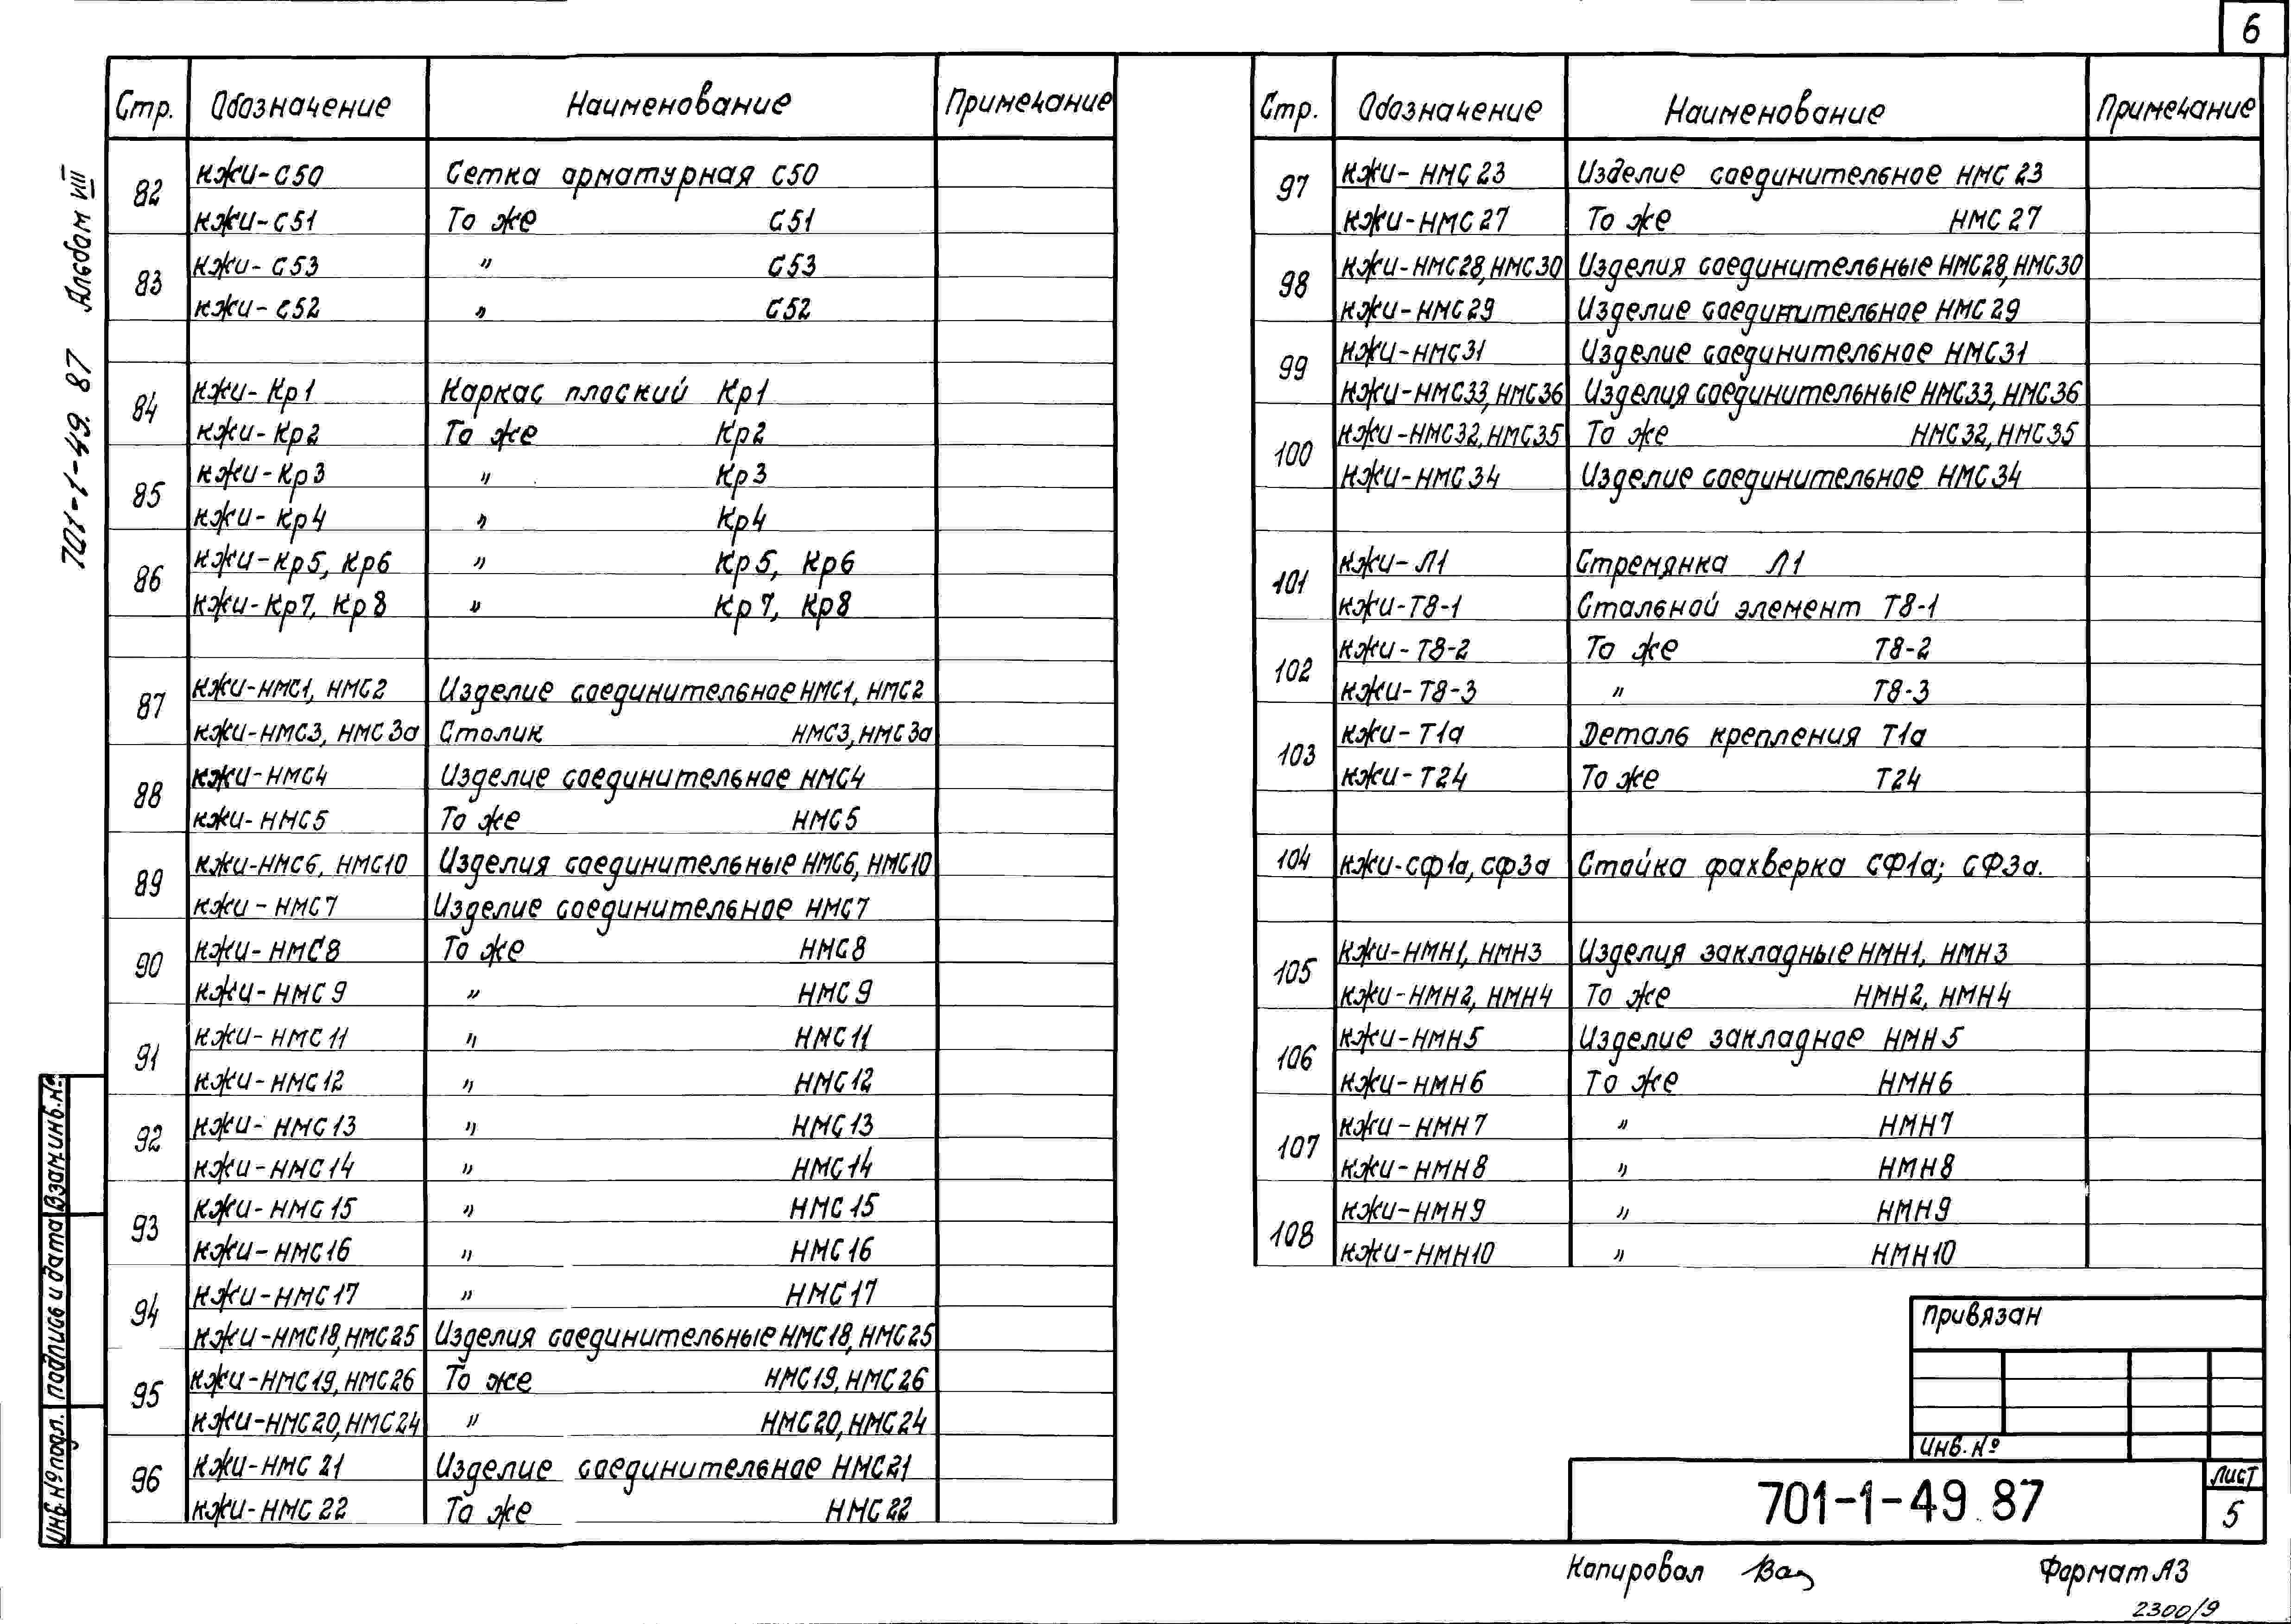 6
Стр. Обозначение Наименование Примечание
82 кжи-С50 Сетка арматурная С50
кжи-С51 То же С51
83 кжи-С53 " С53
кжи-С52 " С52
84 кжи-Кр1 Каркас плоский Кр1
кжи-Кр2 То же Кр2
85 кжи-Кр3 " Кр3
кжи-Кр4 " Кр4
86 кжи-Кр5, Кр6 " Кр5, Кр6
кжи-Кр7, Кр8 " Кр7, Кр8
87 кжи-НМС1, НМС2 Изделие соединительное НМС1, НМС2
кжи-НМС3, НМС3а Столик НМС3, НМС3а
88 кжи-НМС4 Изделие соединительное НМС4
кжи-НМС5 То же НМС5
89 кжи-НМС6, НМС10 Изделия соединительные НМС6, НМС10
кжи-НМС7 Изделие соединительное НМС7
90 кжи-НМС8 То же НМС8
кжи-НМС9 " НМС9
91 кжи-НМС11 " НМС11
кжи-НМС12 " НМС12
92 кжи-НМС13 " НМС13
кжи-НМС14 " НМС14
93 кжи-НМС15 " НМС15
кжи-НМС16 " НМС16
94 кжи-НМС17 " НМС17
кжи-НМС18, НМС25 Изделия соединительные НМС18, НМС25
95 кжи-НМС19, НМС26 То же НМС19, НМС26
кжи-НМС20, НМС24 " НМС20, НМС24
96 кжи-НМС21 Изделие соединительное НМС21
кжи-НМС22 То же НМС22
Стр. Обозначение Наименование Примечание
97 кжи-НМС23 Изделие соединительное НМС23
кжи-НМС27 То же НМС27
98 кжи-НМС28, НМС30 Изделия соединительные НМС28, НМС30
кжи-НМС29 Изделие соединительное НМС29
99 кжи-НМС31 Изделие соединительное НМС31
кжи-НМС33, НМС36 Изделия соединительные НМС33, НМС36
100 кжи-НМС32, НМС35 То же НМС32, НМС35
кжи-НМС34 Изделие соединительное НМС34
101 кжи-Л1 Стремянка Л1
кжи-Т8-1 Стальной элемент Т8-1
102 кжи-Т8-2 То же Т8-2
кжи-Т8-3 " Т8-3
103 кжи-Т1а Деталь крепления Т1а
кжи-Т24 То же Т24
104 кжи-сф1а, сф3а Стойка фахверка СФ1а; СФ3а.
105 кжи-НМН1, НМН3 Изделия закладные НМН1, НМН3
кжи-НМН2, НМН4 То же НМН2, НМН4
106 кжи-НМН5 Изделие закладное НМН5
кжи-НМН6 То же НМН6
107 кжи-НМН7 " НМН7
кжи-НМН8 " НМН8
108 кжи-НМН9 " НМН9
кжи-НМН10 " НМН10
701-1-49.87 Альбом VIII
Взам.инв.№
Подпись и дата
Инв.№подл.
Привязан
Инв.№
701-1-49.87
Лист
5
Копировал
Формат А3
2300/9